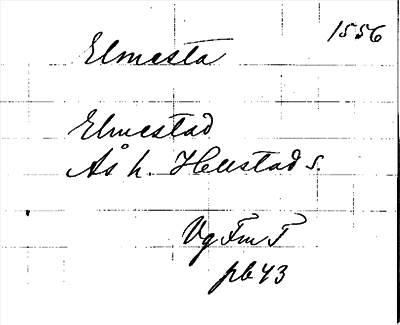 1556
Elmesta
Elmestad
Ås h. Hellstad s.
Vg Fm T
pb 43